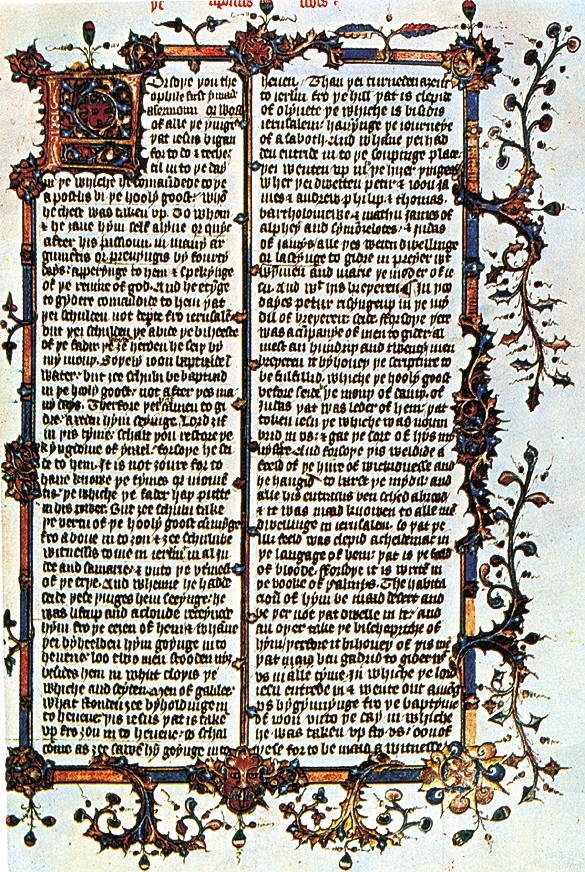 þe apostlis
Forsoþe þou the
ophile first y made
a sermoun or word
of alle þe þingis
þat iesus bigan
for to do & teche:
til in to þe day
in þe whiche he comaundede to þe
apostlis bi þe hooly goost: whom
he chees was taken up. To whom
& he ȝaue hym self alyue or quyc
after his passioun: in many ar
gumentis or preuyngis by fourty
days: apperynge to hem & spekynge
of þe rewme of god. And he etynge
to gydere comaundide to hem þat
þei schulden not departe fro ierusalem
but þei schulden abide þe biheeste
of þe fadir þe whiche ȝe herden he sey by
my mouþ. Soþely ioon baptizide in
water: but ȝee schuln be baptizid
in þe hooly goost: not after þes many
days. Therfore þei camen to gi
dre axeden hym seyinge. Lord ȝif
in þis tyme: schalt þou restore þe
kyngdome of israel. Forsoþe he sei
de to hem: It is not ȝoure for to
haue knowe þe tymes or momen
tis: þe whiche þe fader haþ putte
in his power. But ȝee schuln take
þe vertu of þe hooly goost comynge
fro aboue in to ȝou & ȝee schuln be
witnessis to me in ierusalem in al ju
dee and samarie: & vnto þe vtmest
of þe erþe. And whenne he hadde
seide þese þinges hem seeynge: he
was lift up and a cloude receyuede
hym fro þe eyȝen of hem: & whane
þei byheelden hym goynge in to
heuene: loo two men stooden nyȝ
besides hem in whit cloþis þe
whiche and seyden. Men of galilee
what stonden ȝee byholdynge in
to heuene: þis iesus þat is take
up fro ȝou in to heuene: so schal
come as ȝee sawȝ hym goynge in to
heuen. Than þei turneden aȝein
to ierusalem fro þe hill þat is clepid
of olyuete þe whiche is bisidis
ierusalem: hauynge þe iourneye
of a saboth. And whane þei had
den entride in to þe soupinge place:
þei wenten up in to þe hiȝer þingis
wher þei dwelten petir & ioon ja
mes & andrew philip & thomas.
bartholomewe & mathu james of
alphey and symon zelotes. & iudas
of jamys: alle þes weren dwellinge
or lastynge to gidre in preyer wiþ
wymmen and marie þe moder of ie
su. And wiþ his breþeren. In þo
dayes petir risynge up in þe myd
dil of breþeren seide: forsoþe þer
was a cumpanye of men to gidre al
mest an hundrid and twenty men
breþeren it byhoueþ þe scripture to
be fulfillid. whiche þe hooly goost
before seide þe mouþ of dauiþ. of
iudas þat was leder of hem: þat
token iesu þe whiche was noumb
rid in us: & gat þe sort of þis mi
nisterie. And forsoþe þis weldide a
feeld of þe hire of wickidnesse and
he hangid: to barst þe myddil and
alle his entrailis ben sched abrood
& it was maad knowen to alle men
dwellinge in ierusalem: so þat þe
ilk feeld was clepid acheldemak in
þe langage of hem: þat is þe feeld
of bloode. Forsoþe it is writen in
þe booke of psalmys. The habita
cioun of hym be maad desert and
be þer not þat dwelle in it: and
an oþer take þe bischopriche of
hym: þerfore it bihoueþ of þis men
þat maad ben gadrid to gider wiþ
us in alle tyme: in whiche þe lord
iesu entride in & wente out among
us bigynnynge fro þe baptyme
of ioon vn to þe day in whiche
he was taken up fro us: oon of
þese for to be maad a witnesse